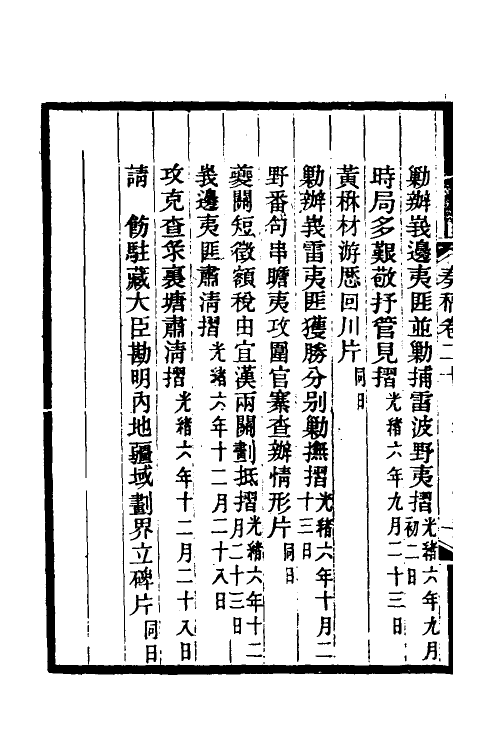 奏稿卷二十
勦辦峩邊夷匪並勦捕雷波野夷摺光緒六年九月初二日
時局多艱敬抒管見摺光緒六年九月二十三日
黃楙材游歷回川片同日
勦辦峩雷夷匪獲勝分别勦撫摺光緒六年十月二十三日
野番勾串瞻夷攻圍官寨查辦情形片同日
夔關短徵額稅由宜漢兩關劃抵摺光緒六年十二月二十三日
峩邊夷匪肅清摺光緒六年十二月二十八日
攻克查朶裏塘肅清摺光緒六年十二月二十八日
請　飭駐藏大臣勘明內地疆域劃界立碑片同日